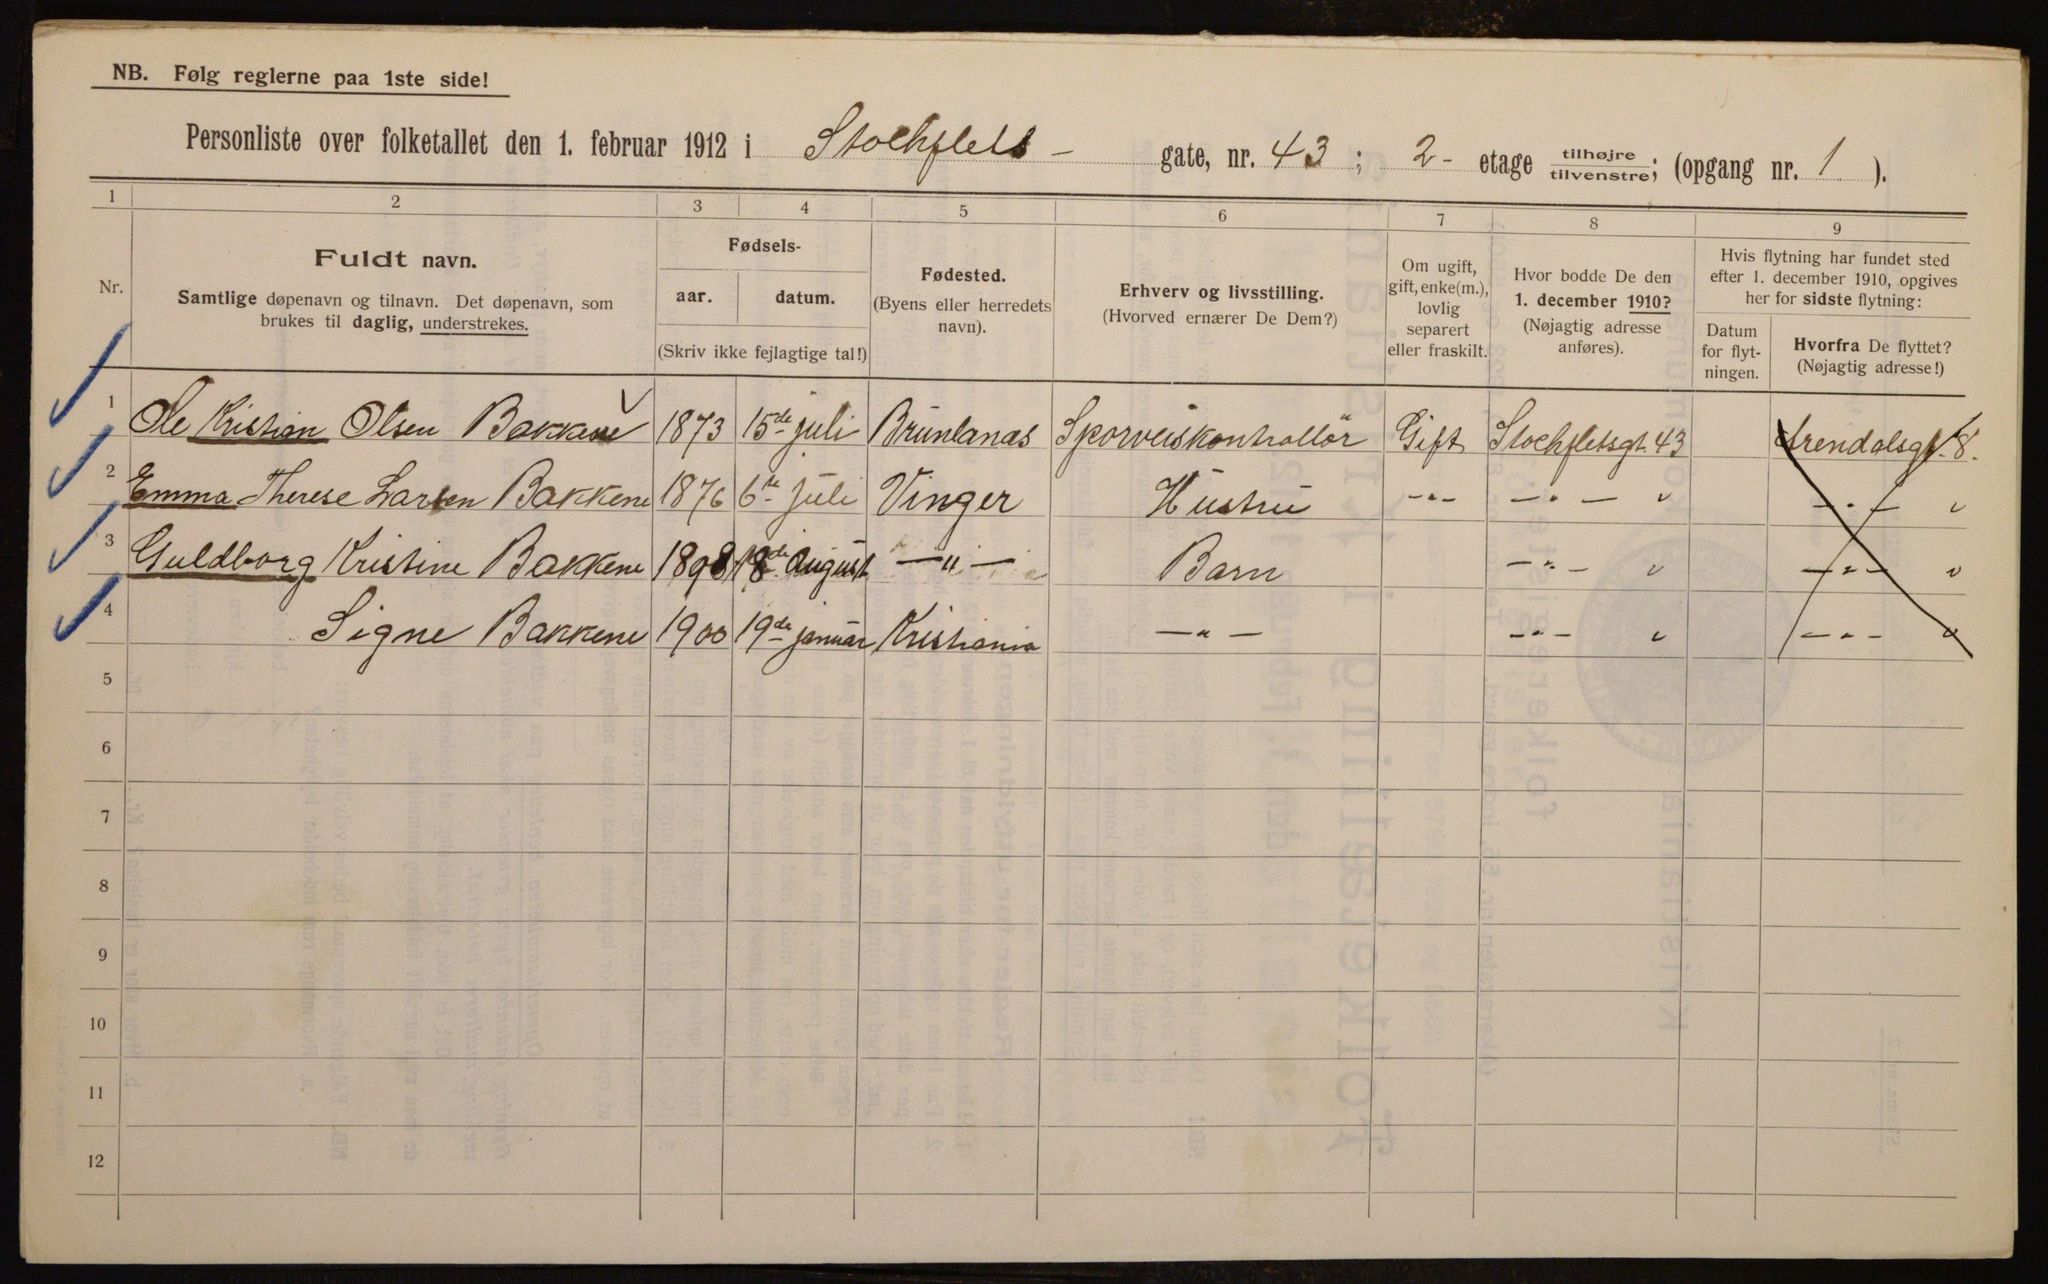 NB. Følg reglerne paa 1ste side!
Personliste over folketallet den 1. februar 1912 i Stockflets - gate, nr. 43 ; 2 - etage tilhøjre tilvenstre; (opgang nr. 1 ).
1 2 3 4 5 6 7 8 9
Nr.
Fuldt navn.
Samtlige døpenavn og tilnavn. Det døpenavn, som
brukes til daglig, understrekes.
Fødsels-
aar. datum.
(Skriv ikke fejlagtige tal!)
Fødested.
(Byens eller herredets
navn).
Erhverv og livsstilling.
(Hvorved ernærer De Dem?)
Om ugift,
gift, enke(m.),
lovlig
separert
eller fraskilt.
Hvor bodde De den
1. december 1910?
(Nøjagtig adresse
anføres).
Hvis flytning har fundet sted
efter 1. december 1910, opgives
her for sidste flytning:
Datum
for flyt-
ningen.
Hvorfra De flyttet?
(Nøjagtig adresse!)
1 Ole Kristian Olsen Bakkene 1873 15de juli Brunlanæs Sporveiskontrollör Gift Stockfletsgt. 43 Arendalsgt. 8.
2 Emma Therese Larsen Bakkene 1876 6te juli Vinger Hustru -"- -"- " -"- "
3 Guldborg Kristine Bakkene 1898 18de august -"- Barn -"- " -"- "
4 Signe Bakkene 1900 19de januar Kristiania -"- -"- " -"- "
5
6
7
8
9
10
11
12